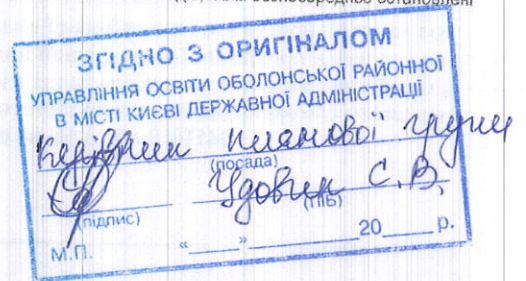 безпосередньо встановлені
ЗГІДНО З ОРИГІНАЛОМ
УПРАВЛІННЯ ОСВІТИ ОБОЛОНСЬКОЇ РАЙОННОЇ
В МІСТІ КИЄВІ ДЕРЖАВНОЇ АДМІНІСТРАЦІЇ
Керівник планової групи
(посада)
Удовик С.В.
(підпис) (ПІБ)
М.П. "____"____________20____р.